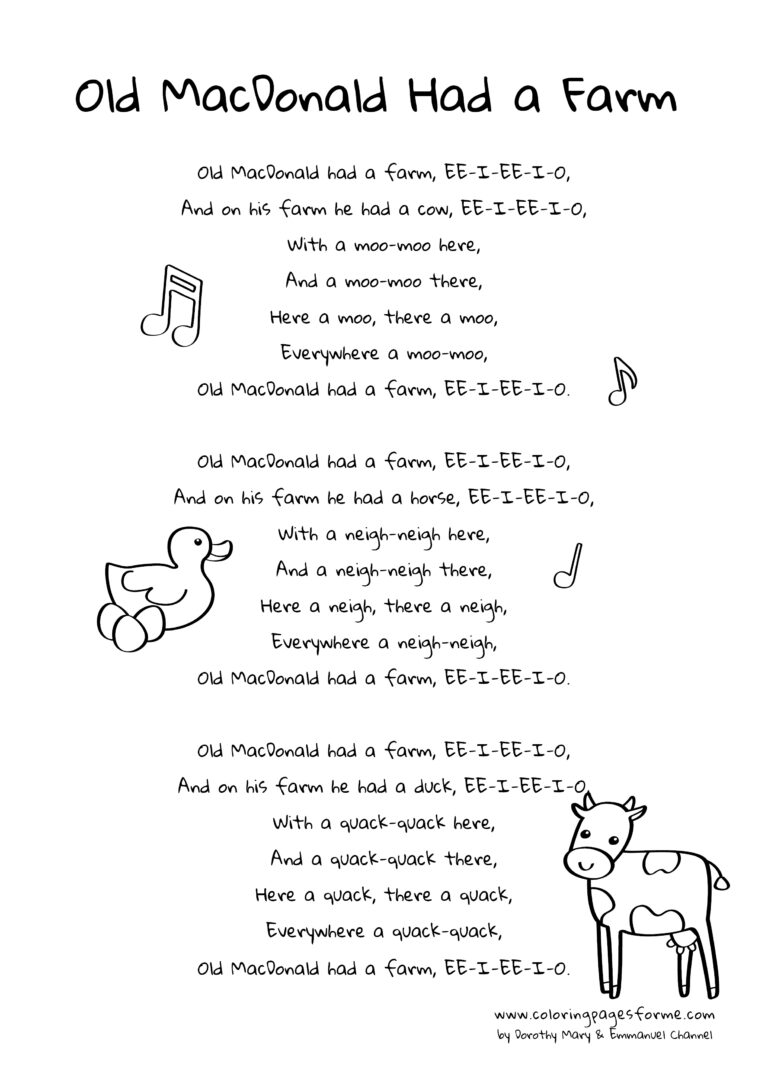 Old MacDonald Had a Farm
Old MacDonald had a farm, EE-I-EE-I-O,
And on his farm he had a cow, EE-I-EE-I-O,
With a moo-moo here,
And a moo-moo there,
Here a moo, there a moo,
Everywhere a moo-moo,
Old MacDonald had a farm, EE-I-EE-I-O.
Old MacDonald had a farm, EE-I-EE-I-O,
And on his farm he had a horse, EE-I-EE-I-O,
With a neigh-neigh here,
And a neigh-neigh there,
Here a neigh, there a neigh,
Everywhere a neigh-neigh,
Old MacDonald had a farm, EE-I-EE-I-O.
Old MacDonald had a farm, EE-I-EE-I-O,
And on his farm he had a duck, EE-I-EE-I-O,
With a quack-quack here,
And a quack-quack there,
Here a quack, there a quack,
Everywhere a quack-quack,
Old MacDonald had a farm, EE-I-EE-I-O.
www.coloringpagesforme.com
by Dorothy Mary & Emmanuel Channel